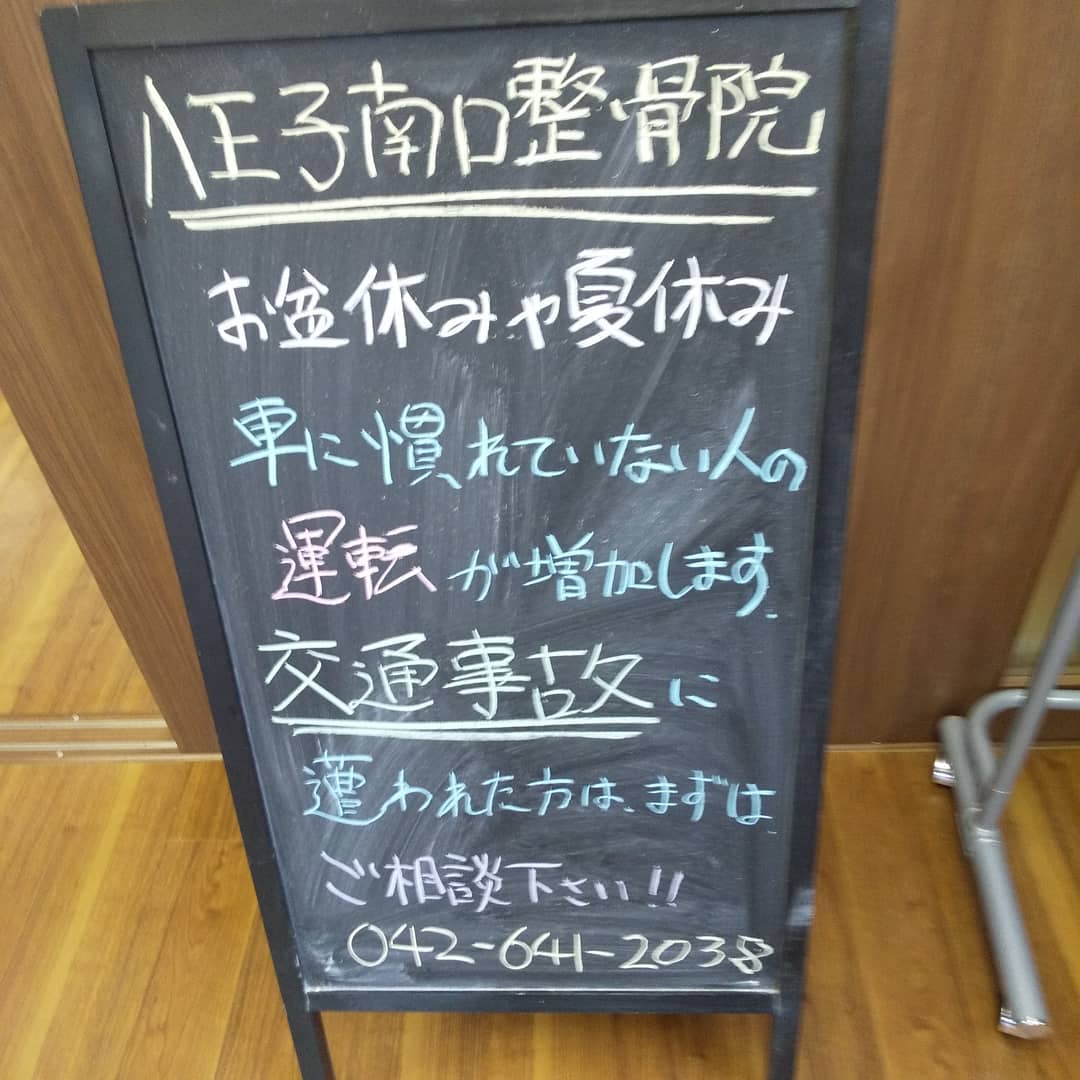 八王子南口整骨院
お盆休みや夏休み
車に慣れていない人の
運転が増加します.
交通事故に
遭われた方は、まずは
ご相談下さい!!
042-641-2038